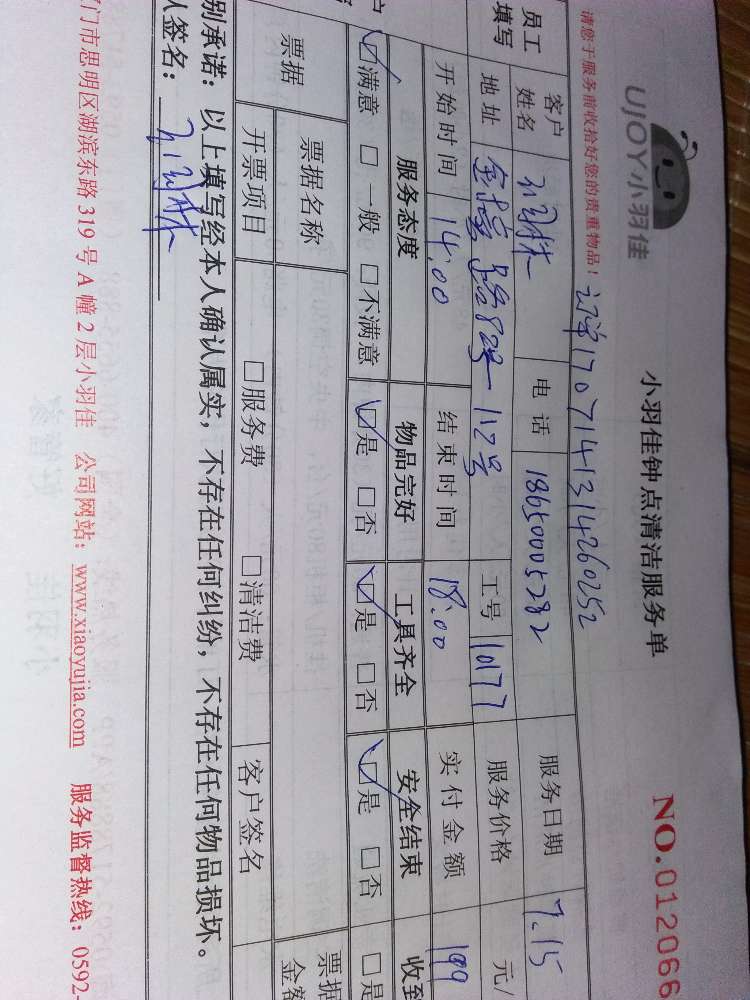 UJOY小羽佳
小羽佳钟点清洁服务单
NO.012066
请您于服务前收拾好您的贵重物品！
1707141314260252
员工
填写
客户
姓名
电话
18650005282
服务日期
7.15
地址
路82号-112号
工号
10177
服务价格
元/
开始时间
14.00
结束时间
18.00
实付金额
199
服务态度
物品完好
工具齐全
安全结束
收到
☑满意 □一般 □不满意
☑是 □否
☑是 □否
☑是 □否
□是
票据
票据名称
票据
开票项目
□服务费
□清洁费
客户签名
别承诺：以上填写经本人确认属实，不存在任何纠纷，不存在任何物品损坏。
人签名：
门市思明区湖滨东路319号A幢2层小羽佳 公司网站：www.xiaoyujia.com 服务监督热线：0592-